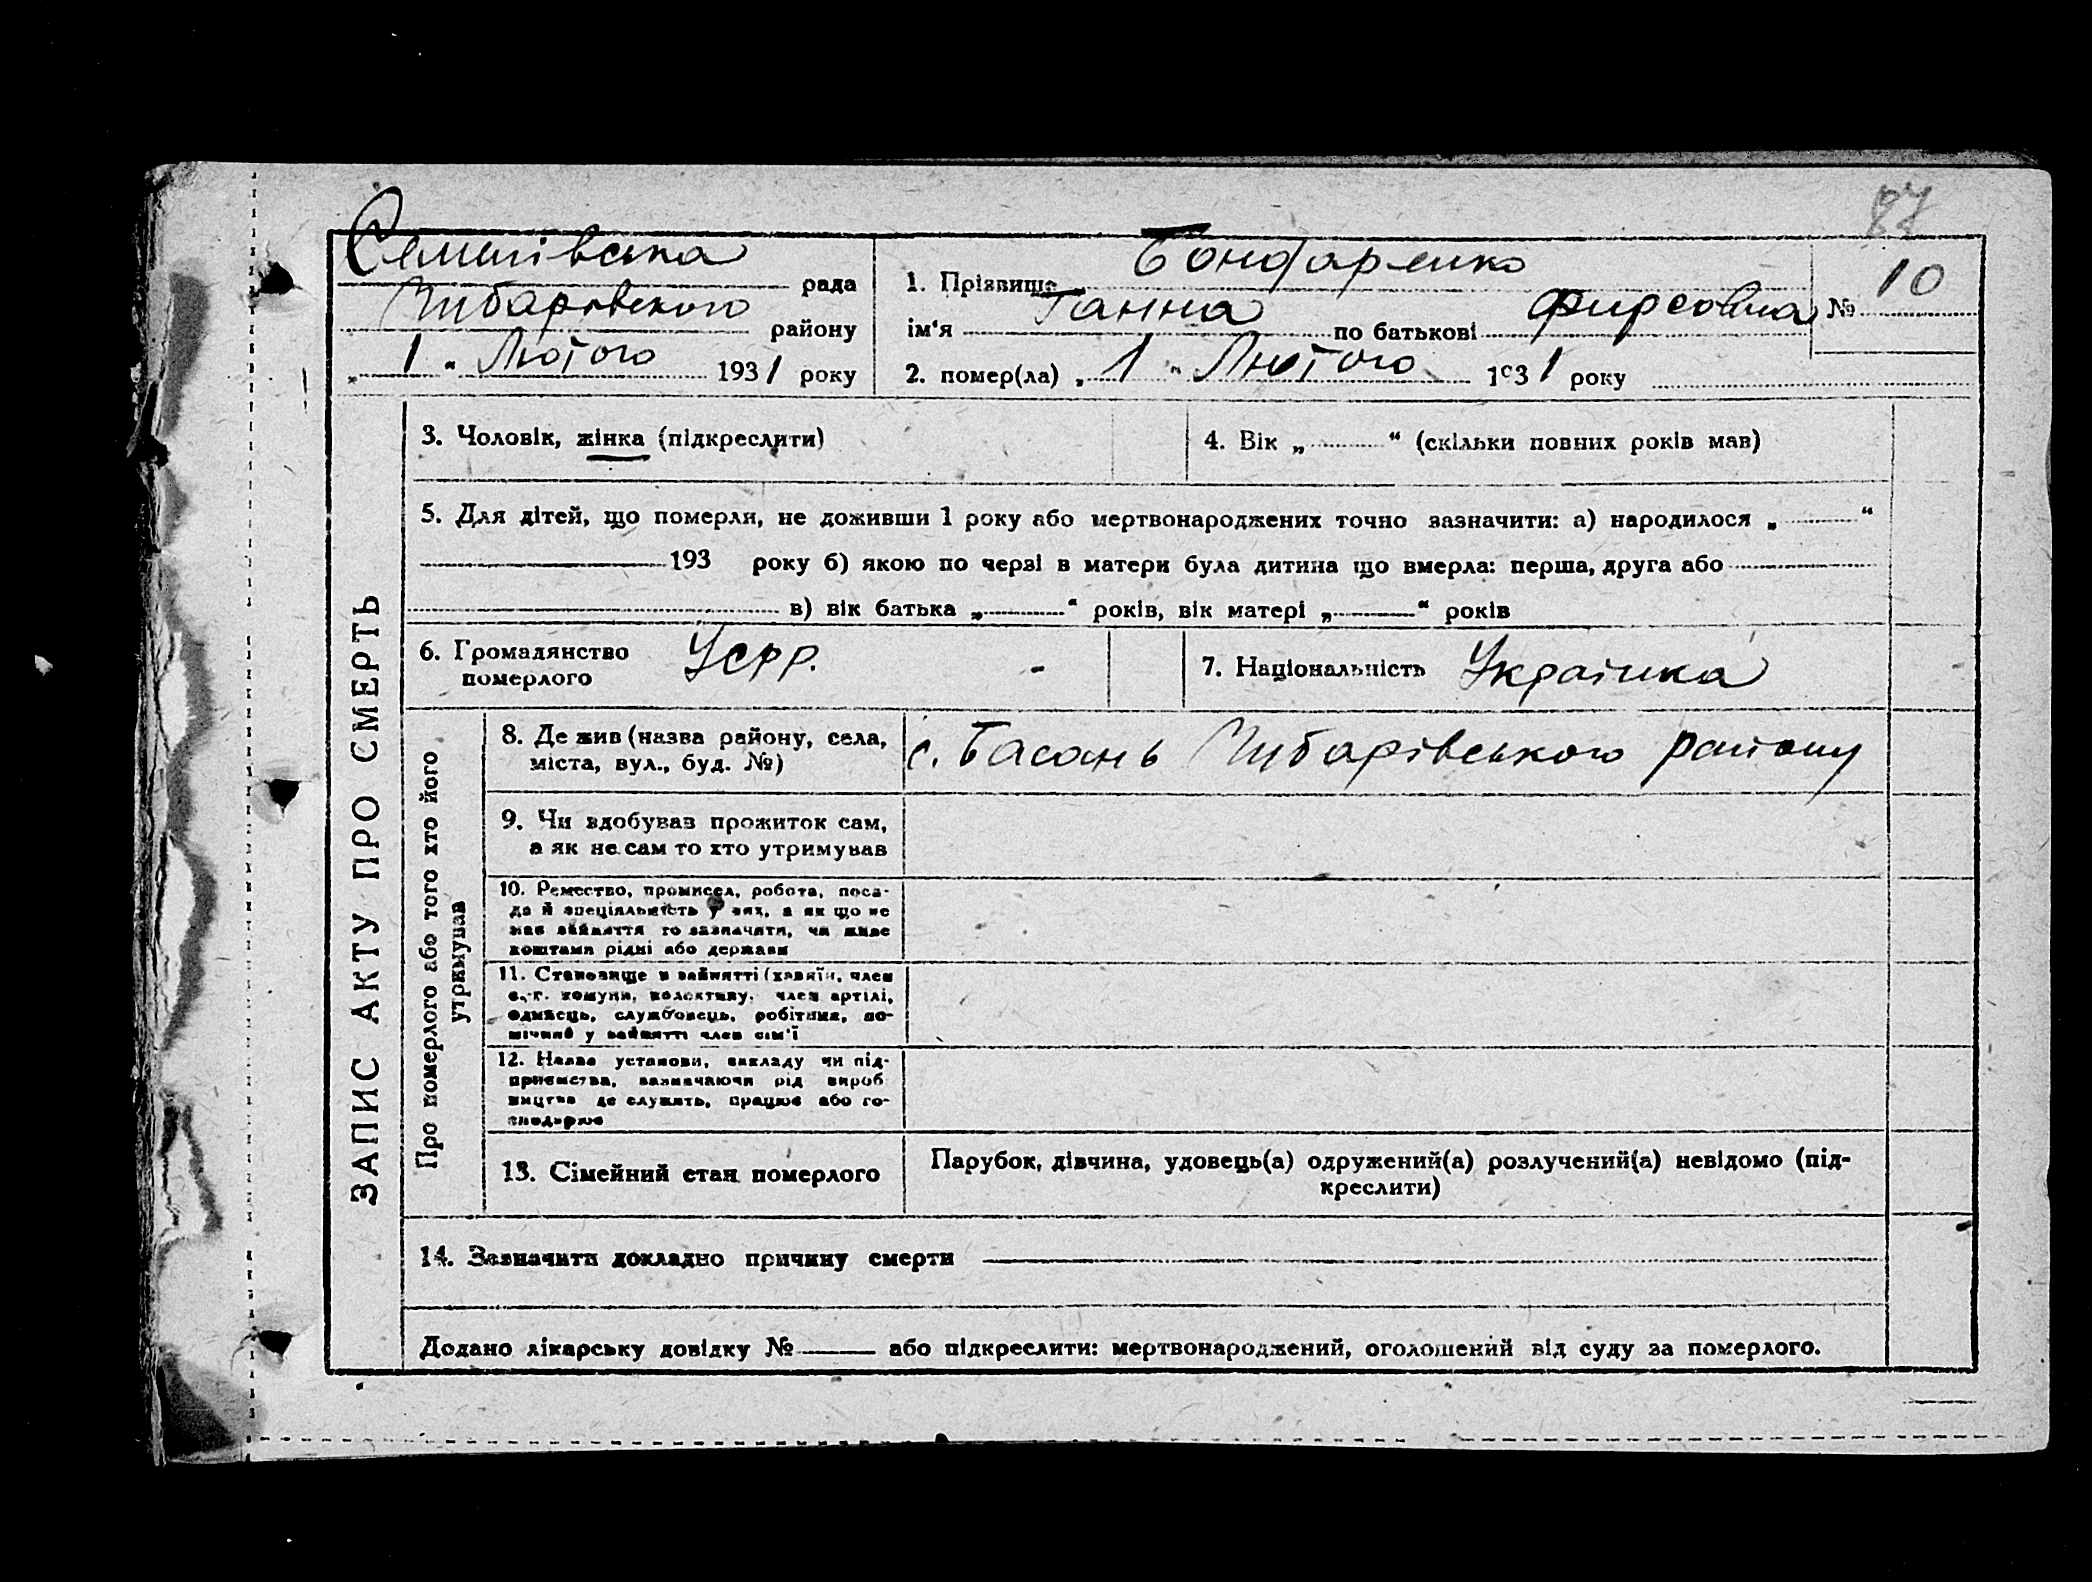 87
Семенівська рада
Чубарівського району
„ 1 “ Лютого 1931 року
1. Прізвище Бондаренко
ім‘я Ганна по батькові Фирсовна № 10
2. помер(ла) „ 1 “ Лютого 1931 року
ЗАПИС АКТУ ПРО СМЕРТЬ
3. Чоловік, жінка (підкреслити)
4. Вік „ “ (скільки повних років мав)
5. Для дітей, що померли, не доживши 1 року або мертвонароджених точно зазначити: а) народилося „ “
193 року б) якою по черзі в матери була дитина що вмерла: перша, друга або
в) вік батька „ “ років, вік матері „ “ років
6. Громадянство
померлого УСРР.
7. Національність Українка
Про померлого або того хто його
утримував
8. Де жив (назва району, села,
міста, вул., буд. №)
с. Басань Чубарівського району
9. Чи здобував прожиток сам,
а як не сам то хто утримував
10. Ремество, промисел, робота, поса-
да й спеціяльність у них, а як що не
мав зайняття то зазначити, чи живе
коштами рідні або держави
11. Становище в зайнятті (хазяїн, член
с.-г. комуни, колективу, член артілі,
одинець, службовець, робітник, по-
мічний у зайнятті член сім‘ї
12. Назва установи, закладу чи під-
приємства, зазначаючи рід вироб
ництва де служить, працює або го-
сподарює
13. Сімейний стан померлого
Парубок, дівчина, удовець(а) одружений(а) розлучений(а) невідомо (під-
креслити)
14. Зазначити докладно причину смерти
Додано лікарську довідку № або підкреслити: мертвонароджений, оголошений від суду за померлого.